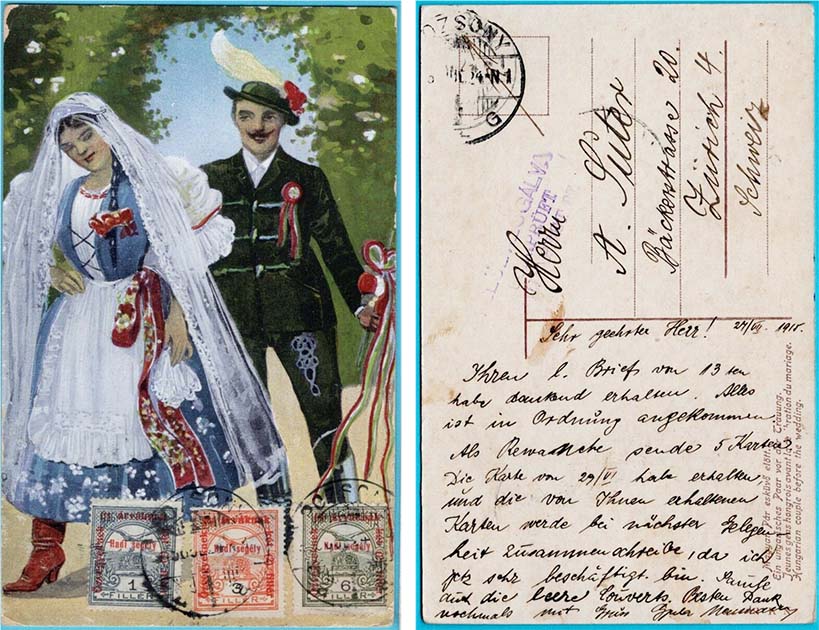 Hadi segély
1
FILLER
Hadi segély
3
FILLER
Hadi segély
6
FILLER
POZSONY
24 N1
G
Herrn
A. Suter
Bäckerstrasse 20.
Zürich 4.
Schweiz
Sehr geehrter Herr!
Ihren l. Brief von 13ten
habe dankend erhalten. Alles
ist in Ordnung angekommen.
Als Rewanche sende 5 Karten
Die Karte von 29/VI habe erhalten
und die von Ihnen erhaltenen
Karten werde bei nächster Gelegen
heit zusammenschreibe, da ich
jetz sehr beschäftigt bin.
auf die leere Couverts. Besten Dank
nochmals mit Gruss
Ein ungarisches Paar vor der Trauung.
Jeunes gens hongrois avant la célébration du mariage.
Hungarian couple before the wedding.